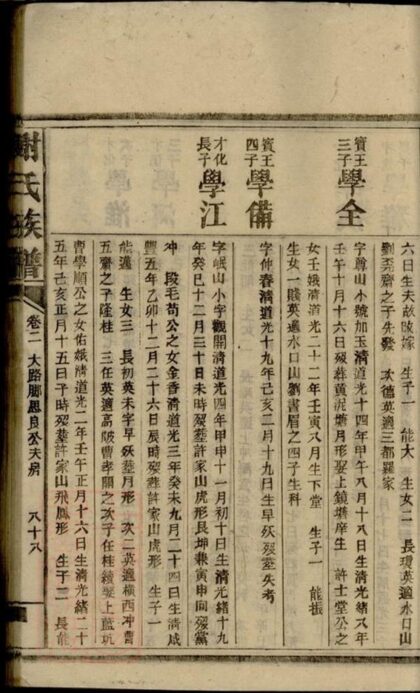 六日生夫故改嫁 生子一 能大 生女二 長瓊英適水口山
劉堯齋之子先發 次德英適三都羅家
賓王三子
學全
字尊山小號加玉清道光十四年甲午八月十八日生清光緒八年
壬午十月十六日歿葬黃泥塘月形娶上鏡塘庠生 許士堂公之
女壬娥清道光二十二年壬寅八月生下堂 生子一 能振
生女一賤英適水口山劉書眉之四子生科
賓王四子
學備
字仲春清道光十九年己亥二月十九日生早殀歿葬失考
才化長子
學江
字岷山小字觀開清道光四年甲申十一月初十日生清光緒十九
年癸巳十二月三十日未時歿葬許家山虎形艮坤兼寅申向歿黨
冲 段毛苟公之女金香清道光三年癸未九月二十四日生清咸
豐五年乙卯十二月二十六日辰時歿葬許家山虎形 生子一
能邁 生女三 長初英未字早殀葬月形 次二英適橫西冲曹
五齋之子隆桂 三任英適高陂曹孝關之次子任桂續娶上藍坑
曹學順公之女佑娥清道光二年壬午正月十六日生清光緒二十
五年己亥正月十五日子時歿葬許家山飛鳳形 生子二 長能
謝氏族譜
卷二 大路腳思良公夫房 八十八